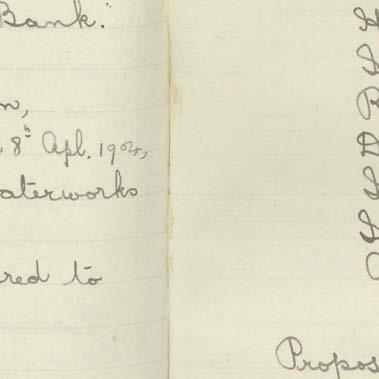 Bank."
n,
8th Apl. 1904,
aterworks
red to
H
S
B
A
S
S
Propos